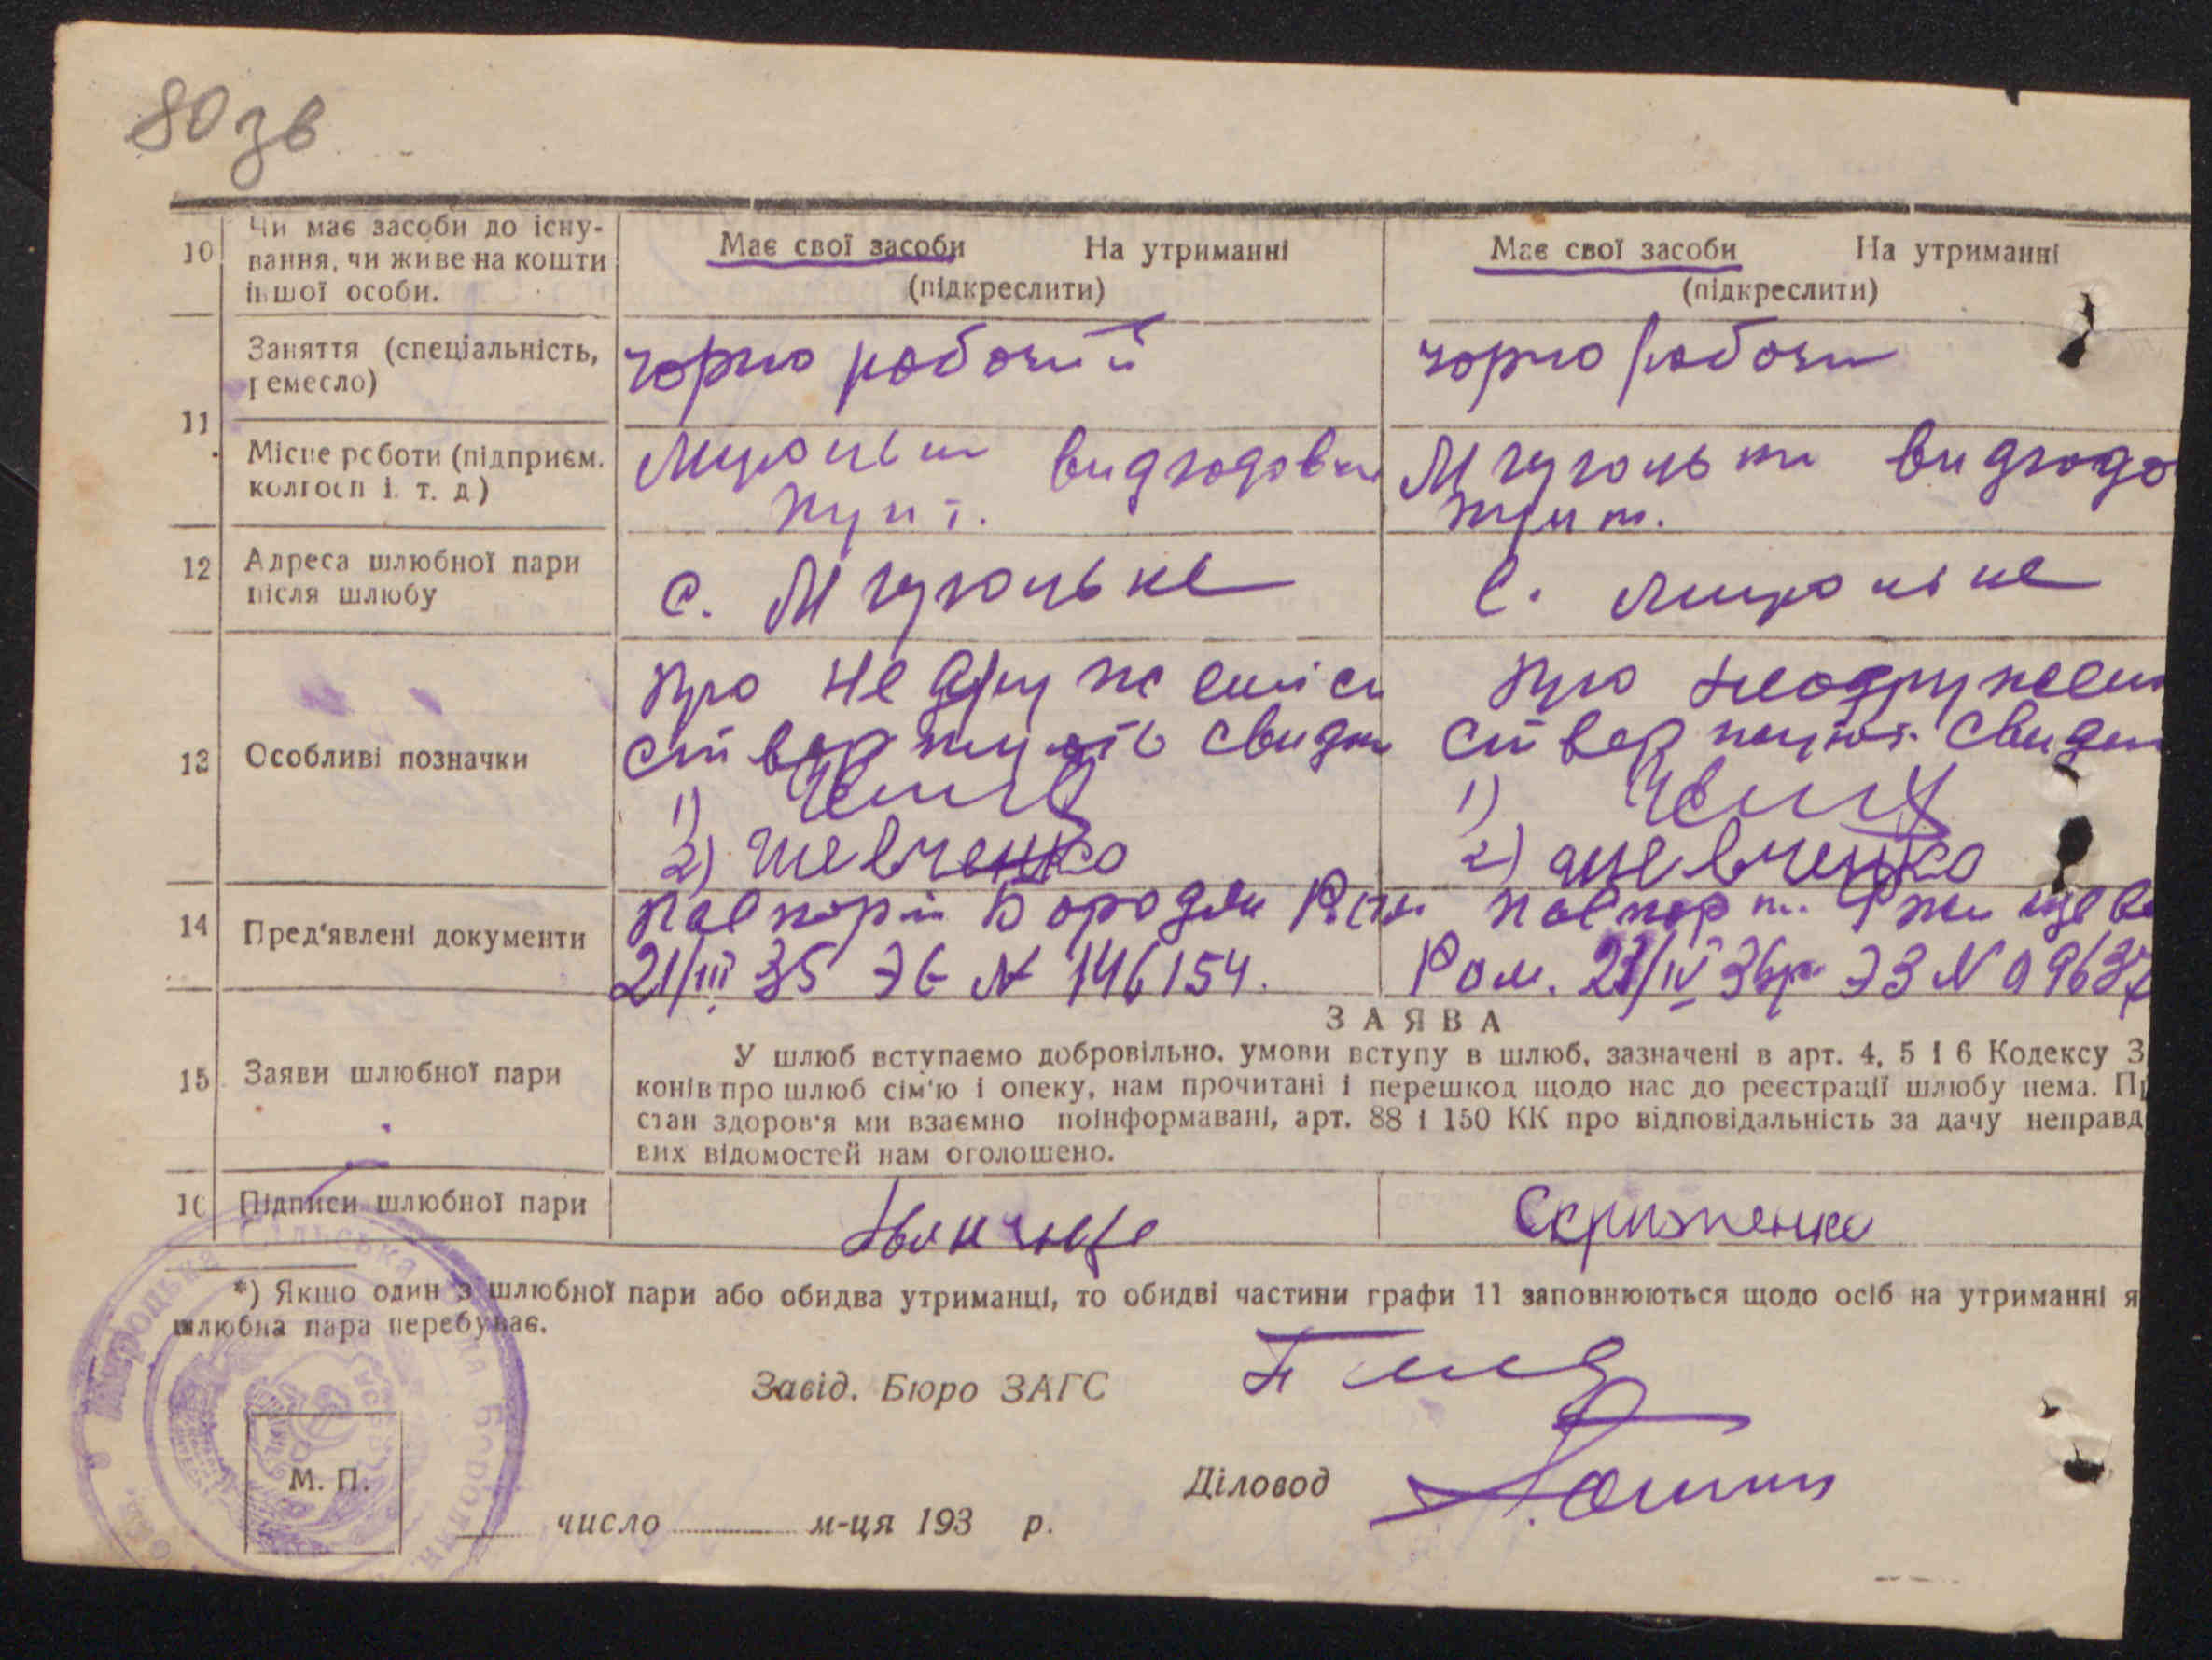 80 зв
10 Чи має засоби до існу-
вання, чи живе на кошти
іншої особи.
Має свої засоби На утриманні
(підкреслити)
Має свої засоби На утриманні
(підкреслити)
11
Заняття (спеціальність,
ремесло)
чорно робочий
чорно робочи
Місце роботи (підприєм.
колгосп і. т. д)
пунт.
12 Адреса шлюбної пари
після шлюбу
с.
с.
13 Особливі позначки
про
ствержують свидки
1)
2) Шевченко
про
ствержують свидки
1)
2) Шевченко
14 Пред'явлені документи
паспорт Бородян
21/III 35 ЭБ № 146154.
паспорт. Ржищев
Ром. /IV 36р ЭЗ №
ЗАЯВА
15 Заяви шлюбної пари
У шлюб вступаємо добровільно, умови вступу в шлюб, зазначені в арт. 4, 5 і 6 Кодексу З
конів про шлюб сім'ю і опеку, нам прочитані і перешкод щодо нас до реєстрації шлюбу нема. Пр
стан здоров'я ми взаємно поінформавані, арт. 88 і 150 КК про відповідальність за дачу неправд
вих відомостей нам оголошено.
16 Підписи шлюбної пари
Скриженко
*) Якшо один з шлюбної пари або обидва утриманці, то обидві частини графи 11 заповнюються щодо осіб на утриманні я
шлюбна пара перебуває.
Завід. Бюро ЗАГС
Діловод
М. П.
число м-ця 193 р.
Сільська